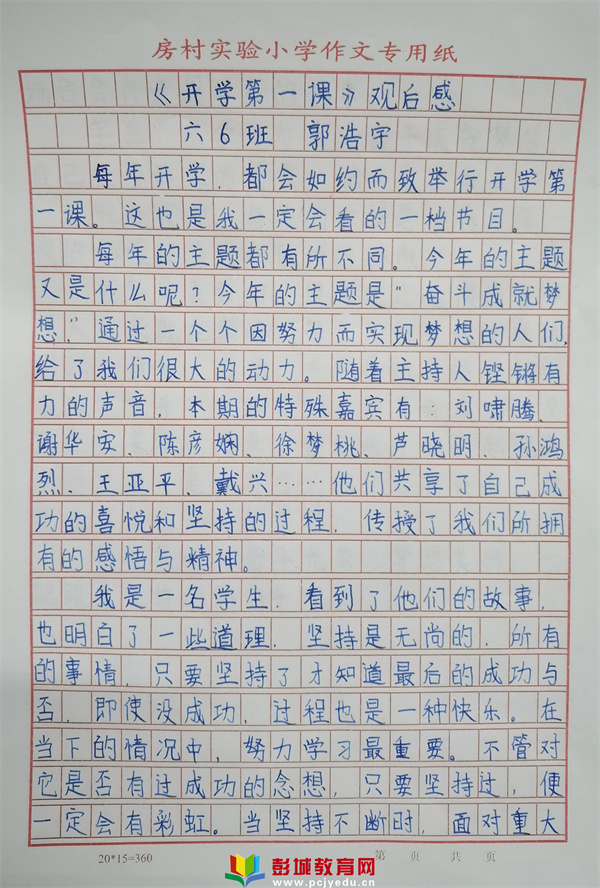 房村实验小学作文专用纸
《开学第一课》观后感
六6班 郭浩宇
每年开学,都会如约而致举行开学第
一课。这也是我一定会看的一档节目。
每年的主题都有所不同。今年的主题
又是什么呢?今年的主题是“奋斗成就梦
想,”通过一个个因努力而实现梦想的人们,
给了我们很大的动力。随着主持人铿锵有
力的声音,本期的特殊嘉宾有:刘啸腾、
谢华安、陈彦娴、徐梦桃、芦晓明、孙鸿
烈、王亚平、戴兴……他们共享了自己成
功的喜悦和坚持的过程,传授了我们所拥
有的感悟与精神。
我是一名学生,看到了他们的故事,
也明白了一些道理,坚持是无尚的,所有
的事情,只要坚持了才知道最后的成功与
否,即使没成功,过程也是一种快乐。在
当下的情况中,努力学习最重要。不管对
它是否有过成功的念想,只要坚持过,便
一定会有彩虹。当坚持不断时,面对重大
20*15=360 第 页 共 页
彭城教育网
www.pcjyedu.cn